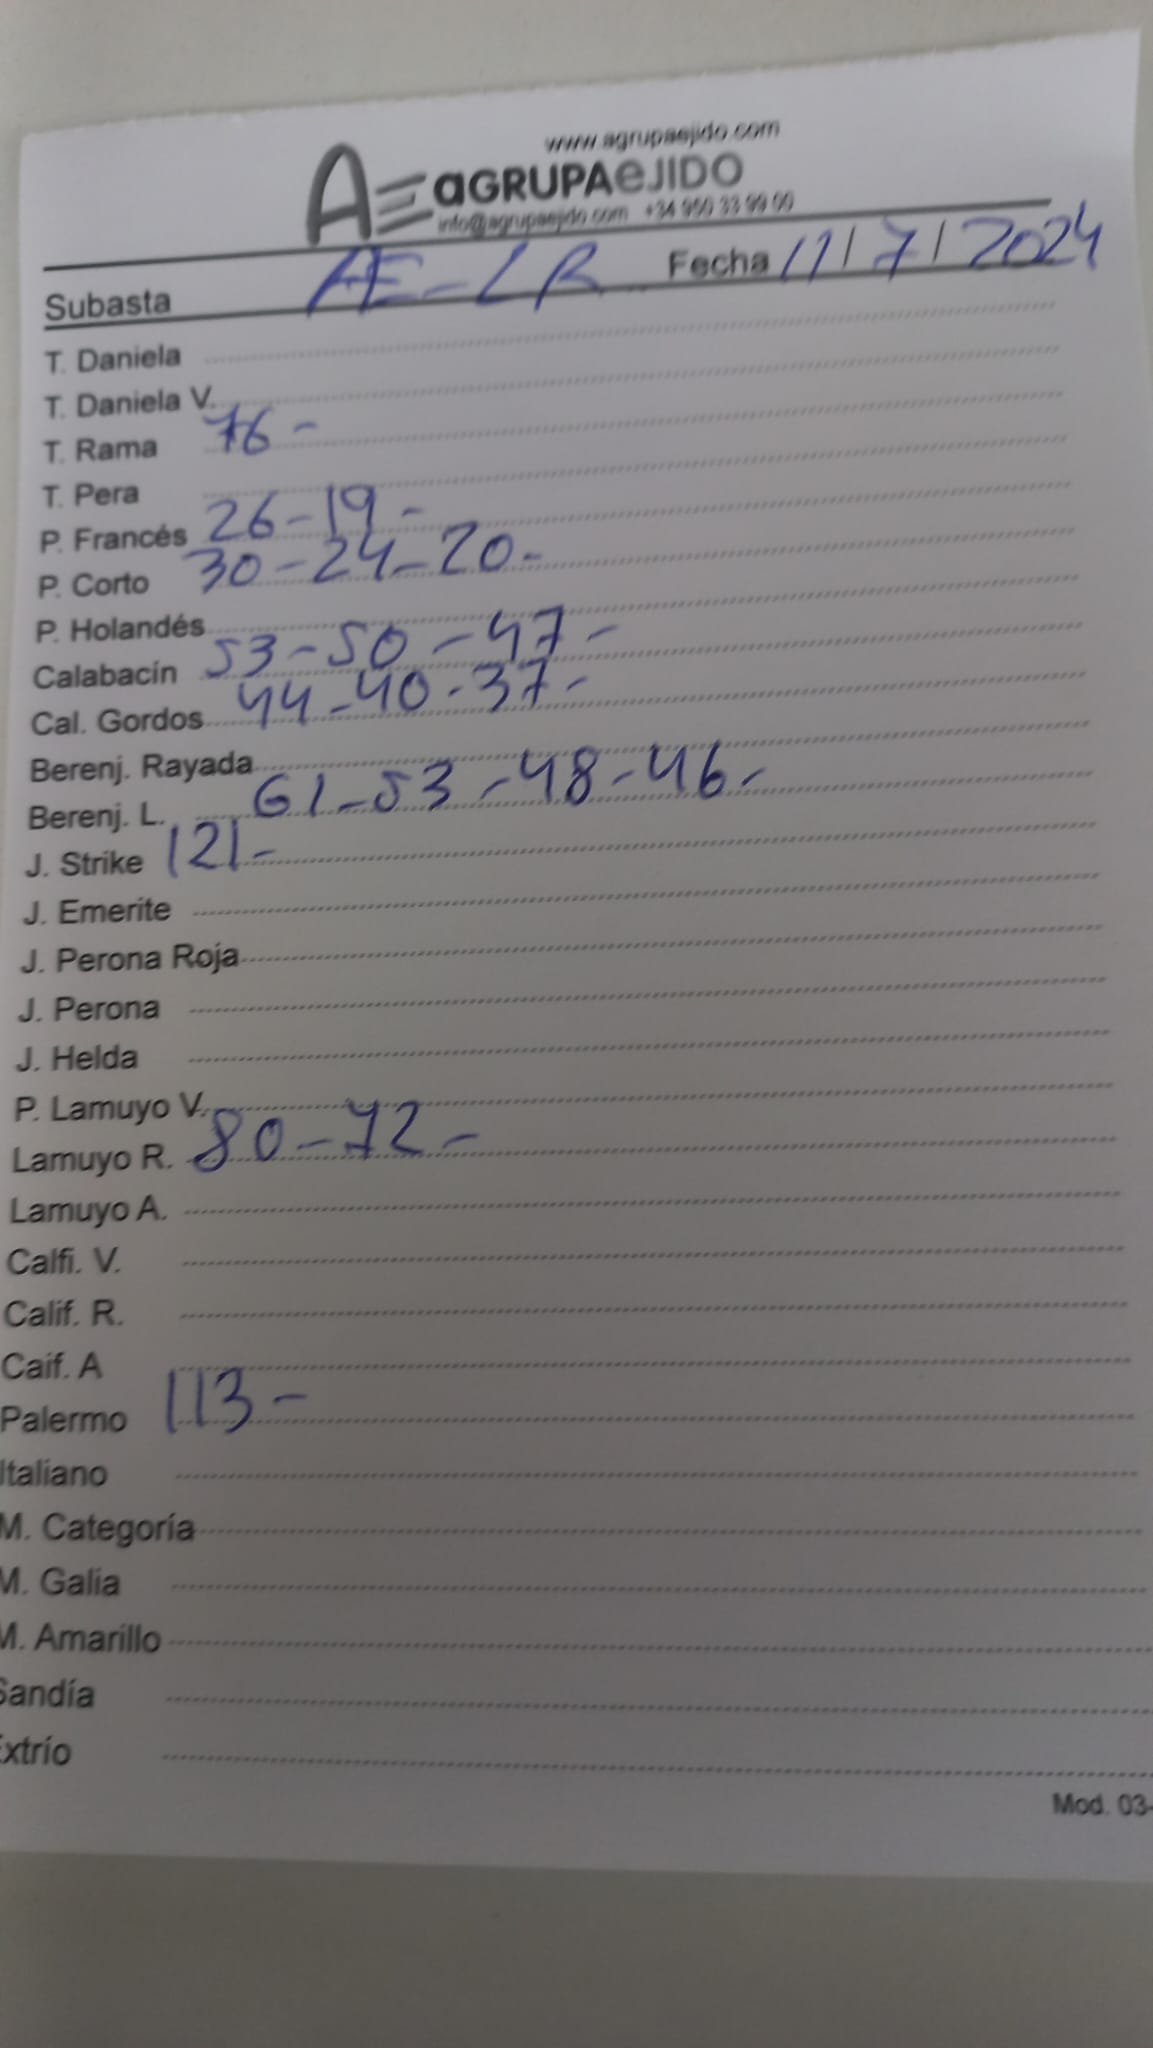 www.agrupaejido.com
AE aGRUPAeJIDO
info@agrupaejido.com +34 950 33 99 00
Subasta AE-LR Fecha 11/7/2024
T. Daniela
T. Daniela V.
T. Rama 76-
T. Pera
P. Francés 26-19-
P. Corto 30-24-20-
P. Holandés
Calabacín 53-50-47-
Cal. Gordos 44-40-37-
Berenj. Rayada
Berenj. L. 61-53-48-46-
J. Strike 121-
J. Emerite
J. Perona Roja
J. Perona
J. Helda
P. Lamuyo V.
Lamuyo R. 80-72-
Lamuyo A.
Calfi. V.
Calif. R.
Caif. A
Palermo 113-
Italiano
M. Categoría
M. Galia
M. Amarillo
Sandía
Extrío
Mod. 03-